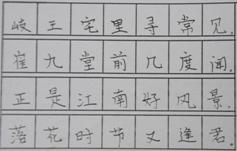 岐王宅里寻常见.
崔九堂前几度闻.
正是江南好风景.
落花时节又逢君.